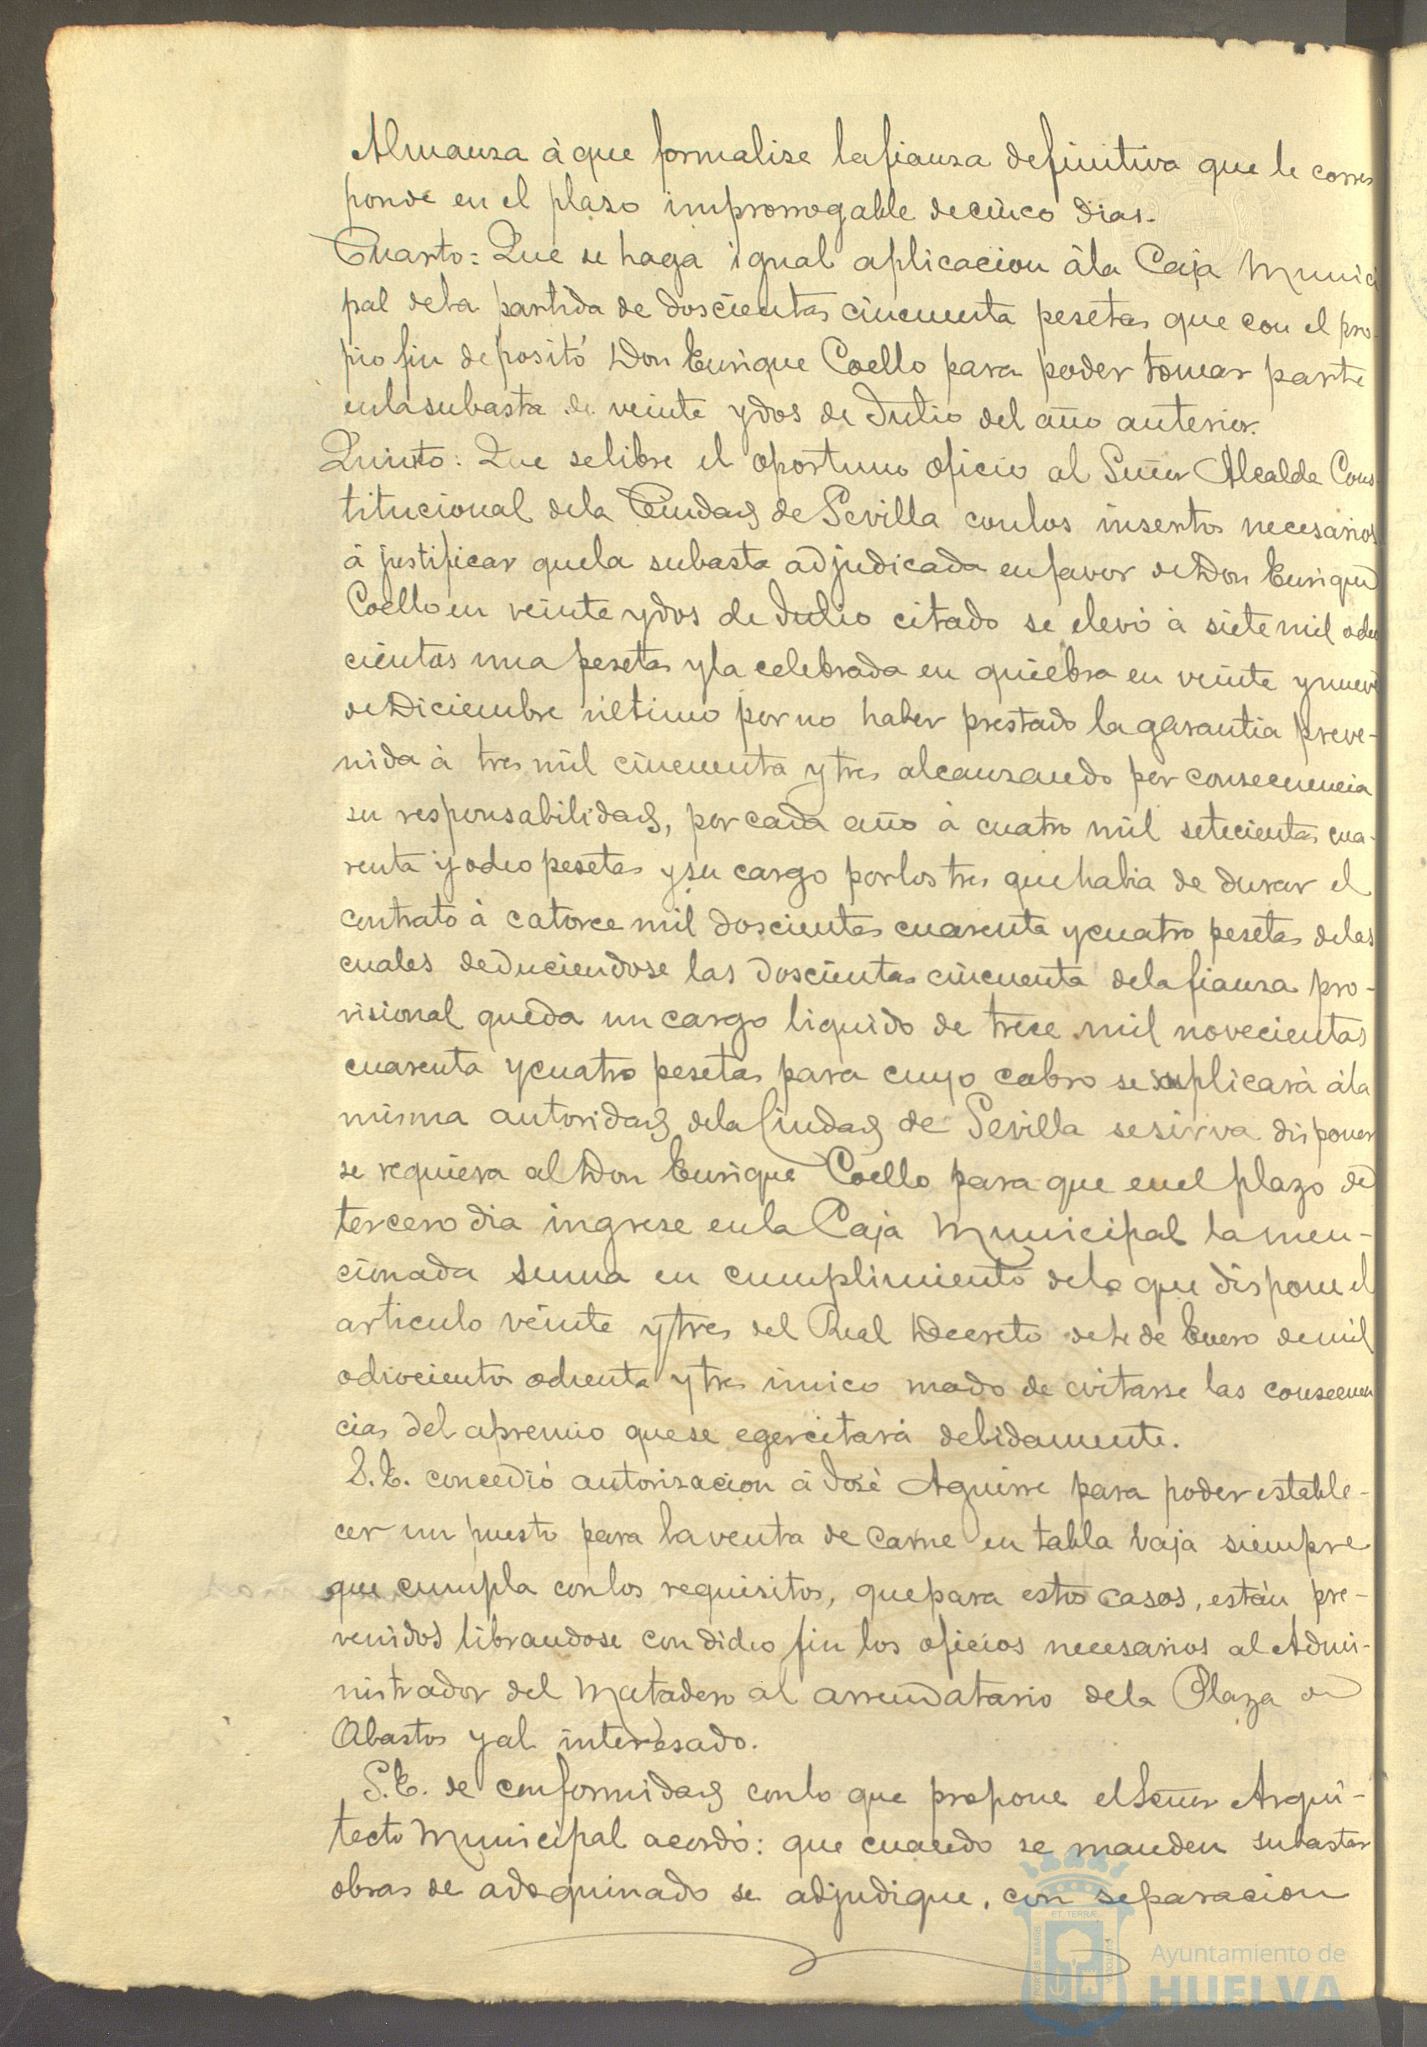 Almansa à que formalise la fianza definitiva que le corres
ponde en el plazo improrrogable de cinco dias.
Cuarto: Que se haga igual aplicacion à la Caja Munici
pal de la partida de doscientas cincuenta pesetas que con el pro-
pio fin depositó Don Enrique Coello para poder tomar parte
en la subasta de veinte y dos de Julio del año anterior.
Quinto: Que se libre el oportuno oficio al Señor Alcalde Cons
titucional de la Ciudad de Sevilla con los insertos necesarios
à justificar que la subasta adjudicada en favor de Don Enrique
Coello en veinte y dos de Julio citado se elevó à siete mil ocho
cientas una pesetas y la celebrada en quiebra en veinte y nueve
de Diciembre ultimo por no haber prestado la garantia preve-
nida à tres mil cincuenta y tres alcanzando por consecuencia
su responsabilidad, por cada año à cuatro mil setecientas cua-
renta y ocho pesetas y su cargo por los tres que habia de durar el
contrato à catorce mil doscientas cuarenta y cuatro pesetas de las
cuales deduciendose las doscientas cincuenta de la fianza pro-
visional queda un cargo liquido de trece mil novecientas
cuarenta y cuatro pesetas para cuyo cobro se suplicará à la
misma autoridad de la Ciudad de Sevilla se sirva disponer
se requiera al Don Enrique Coello para que en el plazo de
tercero dia ingrese en la Caja Municipal la men-
cionada suma en cumplimiento de lo que dispone el
articulo veinte y tres del Real Decreto de 4 de Enero de mil
ochocientos ochenta y tres unico modo de evitarse las consecuen
cias del apremio que se egercitará debidamente.
S.E. concedió autorizacion à José Aguirre para poder estable-
cer un puesto para la venta de carne en tabla baja siempre
que cumpla con los requisitos, que para estos casos, están pre-
venidos librandose con dicho fin los oficios necesarios al Admi-
nistrador del Matadero al arrendatario de la Plaza de
Abastos y al interesado.
S.E. de conformidad con lo que propone el Señor Arqui-
tecto Municipal acordó: que cuando se manden subastar
obras de adoquinado se adjudique, con separacion
Ayuntamiento de
HUELVA